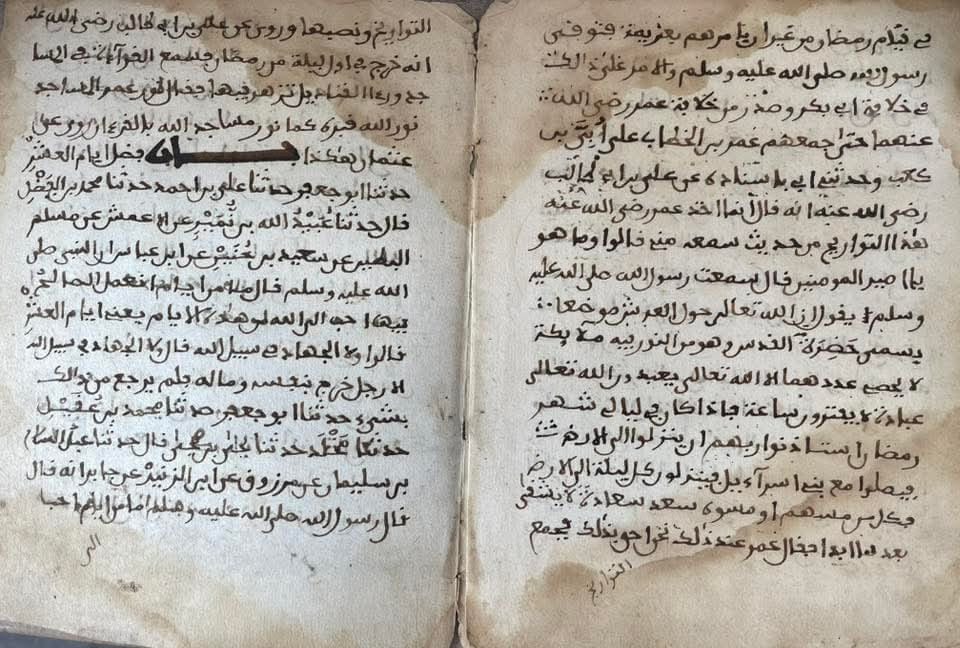 في قيام رمضان من غير ان يامرهم بعزيمة فتوفى
رسول الله صلى الله عليه وسلم والامر على ذالك
في خلافة ابي بكر وصدر من خلافة عمر رضى الله
عنهما حتى جمعهم عمر بن الخطاب على أبي بن
كعب وحدثني ابي باسناده عن علي بن ابي طالب
رضي الله عنه انه قال انما اخذ عمر رضى الله عنه
هذا التواريخ من حديث سمعه مني قالوا وما هو
يا امير المومنين قال سمعت رسول الله صلى الله عليه
وسلم يقول ان الله تعالى حول العرش موضعا
يسمى حضرة القدس وهو من النور فيه ملايكة
لا يحصي عددهم الا الله تعالى يعبدون الله تعالى
عبادة لا يفترون ساعة فاذا كان في ليالي شهر
رمضان استاذنوا ربهم ان ينزلوا الى الارض
فيصلوا مع بني اسرآءيل فينزلون كل ليلة الى الارض
فكل من مسهم او مسوه سعد سعادة لا يشقى
بعدها ابدا فقال عمر عند ذلك نحن احق بذلك فجمع
التواريخ
التواريخ ونصبها وروي عن علي بن ابي طالب رضى الله عنه
انه خرج في اول ليلة من رمضان فسمع القرآءة في المسا
جد ورءا القناديل تزهر فيها فقال نور عمر المساجد
نور الله قبره كما نور مساجد الله بالقرءان وروي عن
عثمان هكذا باب فضل ايام العشر
حدثنا ابو جعفر حدثنا علي بن احمد حدثنا محمد بن الفضل
قال حدثنا عبيد الله بن نمير عن الاعمش عن مسلم
البطين عن سعيد بن جبير عن ابن عباس ان النبي صلى
الله عليه وسلم قال ما من ايام العمل الصالح
فيها احب الى الله من هذه الايام يعني ايام العشر
قالوا ولا الجهاد في سبيل الله قال ولا الجهاد في سبيل الله
الا رجل خرج بنفسه وماله فلم يرجع من ذالك
بشيء حدثنا ابو جعفر حدثنا محمد بن عقيل
حدثنا محمد حدثنا يحيى بن يحيى قال حدثنا عبد السلام
بن سليمان عن مرزوق عن ابي الزبير عن جابر انه قال
قال رسول الله صلى الله عليه وسلم ما من ايام احب
الى